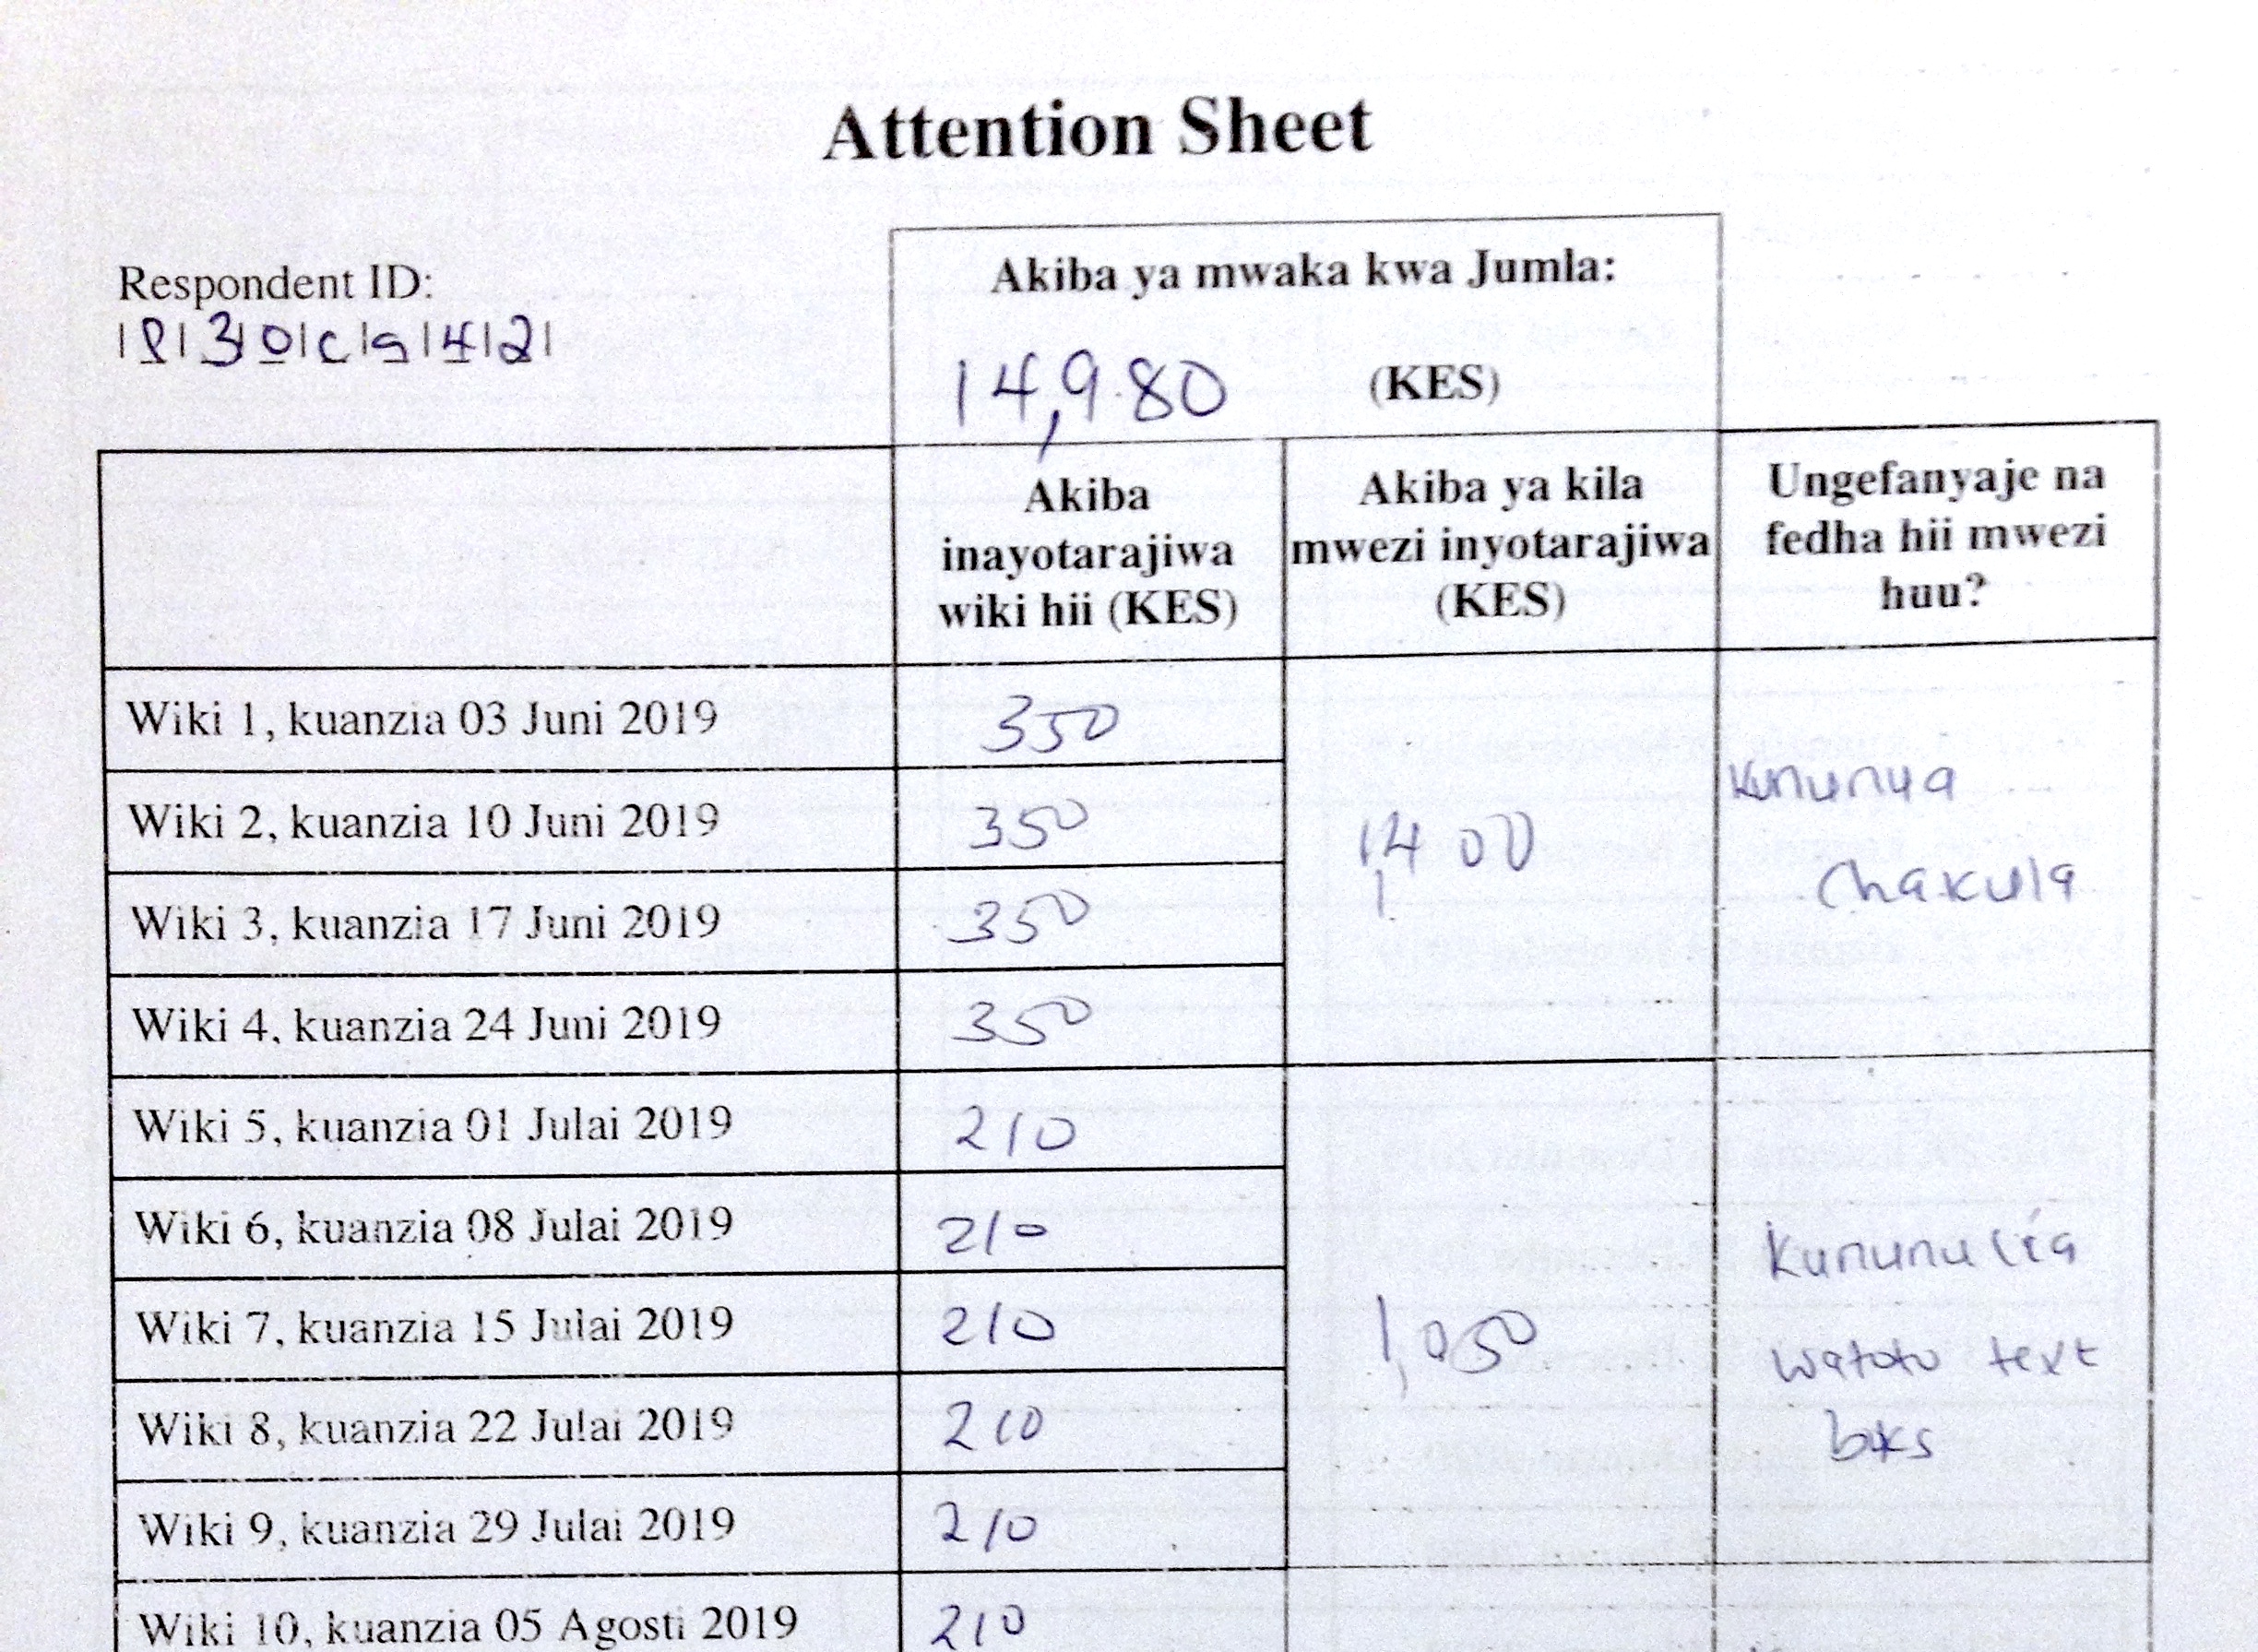 Attention Sheet
Respondent ID:
|8|3|0|c|9|4|2|
Akiba ya mwaka kwa Jumla:
14,980 (KES)
Akiba
inayotarajiwa
wiki hii (KES)
Akiba ya kila
mwezi inyotarajiwa
(KES)
Ungefanyaje na
fedha hii mwezi
huu?
Wiki 1, kuanzia 03 Juni 2019 350
Wiki 2, kuanzia 10 Juni 2019 350
Wiki 3, kuanzia 17 Juni 2019 350
Wiki 4, kuanzia 24 Juni 2019 350
1,400
Kununua
Chakula
Wiki 5, kuanzia 01 Julai 2019 210
Wiki 6, kuanzia 08 Julai 2019 210
Wiki 7, kuanzia 15 Julai 2019 210
Wiki 8, kuanzia 22 Julai 2019 210
Wiki 9, kuanzia 29 Julai 2019 210
1,050
Kununulia
watoto text
bks
Wiki 10, kuanzia 05 Agosti 2019 210